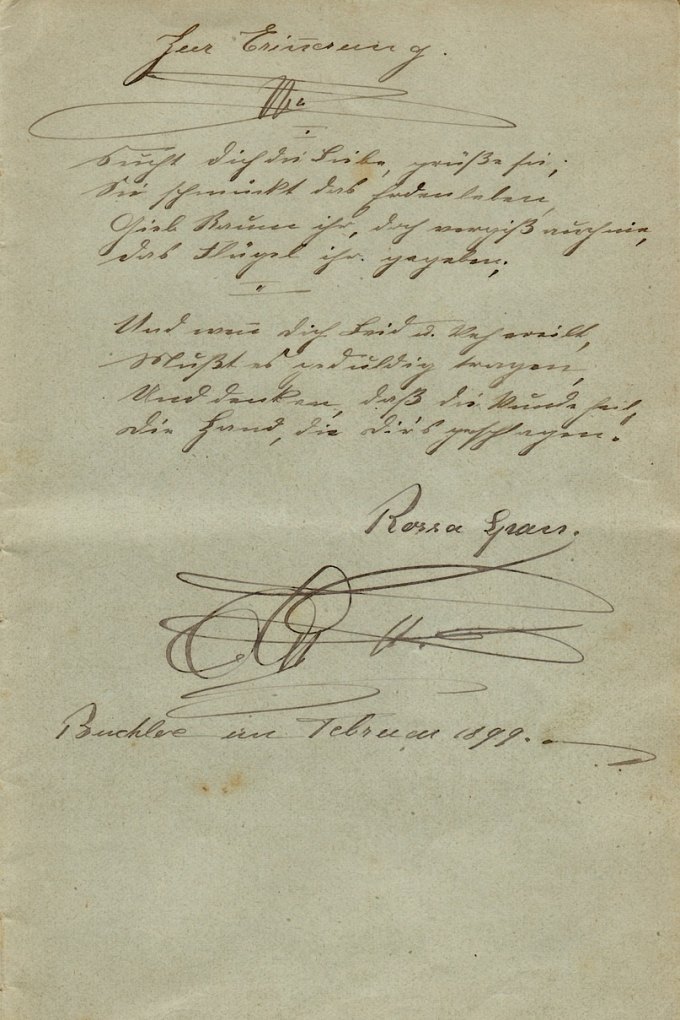 Zur Erinnerung.
Sucht dich die Liebe, grüße sie;
Sie schmückt das Erdenleben,
Gieb Raum ihr, doch vergiß auch nie,
das Flügel ihr gegeben;
Und weñ dich Leid u. Weh ereilt,
Mußt es geduldig tragen,
Und denken, daß die Wunde heilt,
die Hand, die dir's geschlagen.
Rosa
Buchloe im Februar 1899.